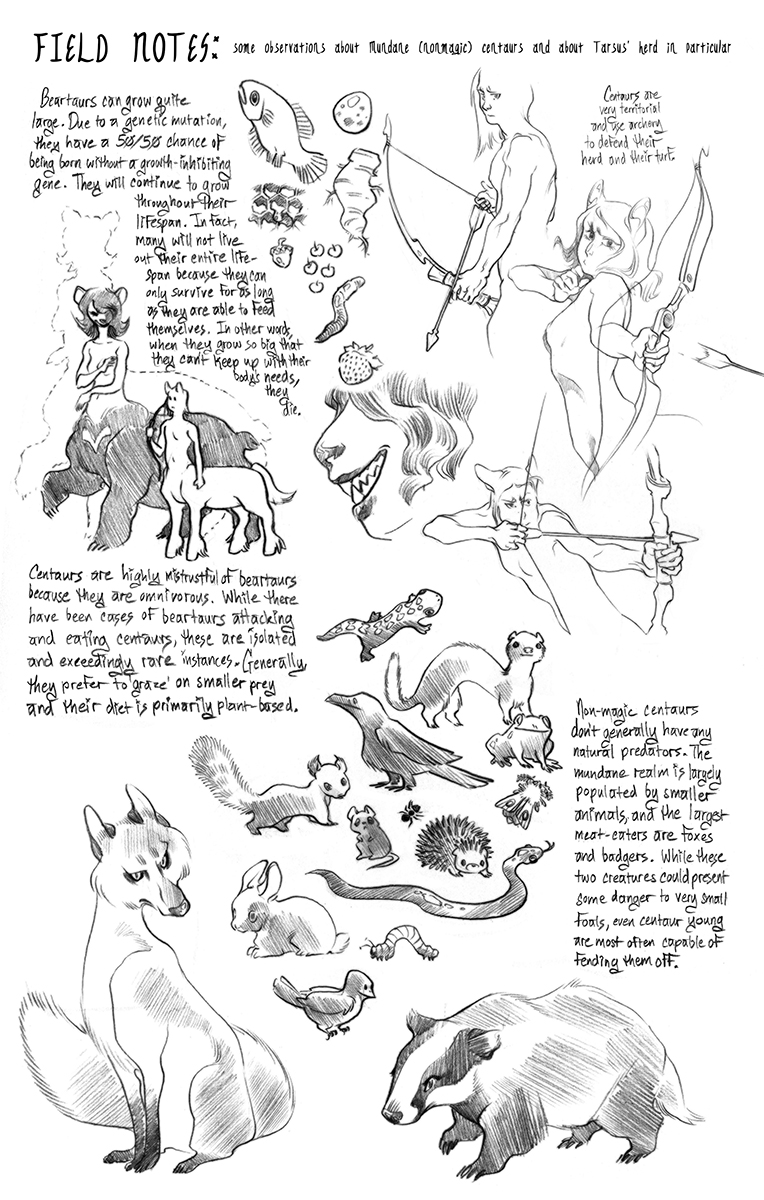 FIELD NOTES: some observations about Mundane (nonmagic) centaurs and about Tarsus' herd in particular
Beartaurs can grow quite
large. Due to a genetic mutation,
they have a 50/50 chance of
being born without a growth-inhibiting
gene. They will continue to grow
throughout their
lifespan. In fact,
many will not live
out their entire life-
span because they can
only survive for as long
as they are able to feed
themselves. In other words,
when they grow so big that
they can't keep up with their
body's needs,
they
die.
Centaurs are
very territorial
and use archery
to defend their
herd and their turf.
Centaurs are highly mistrustful of beartaurs
because they are omnivorous. While there
have been cases of beartaurs attacking
and eating centaurs, these are isolated
and exeeedingly rare instances. Generally,
they prefer to 'graze' on smaller prey
and their diet is primarily plant-based.
Non-magic centaurs
don't generally have any
natural predators. The
mundane realm is largely
populated by smaller
animals, and the largest
meat-eaters are foxes
and badgers. While these
two creatures could present
some danger to very small
foals, even centaur young
are most often capable of
fending them off.